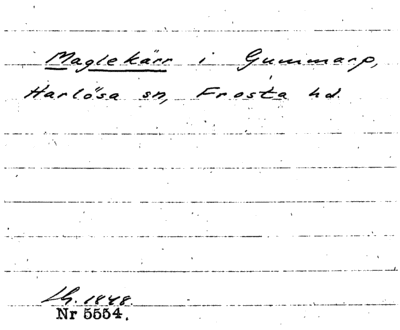 Maglekärr i Gummarp,
Harlösa sn, Frosta hd.
Lh. 1848.
Nr 5554.